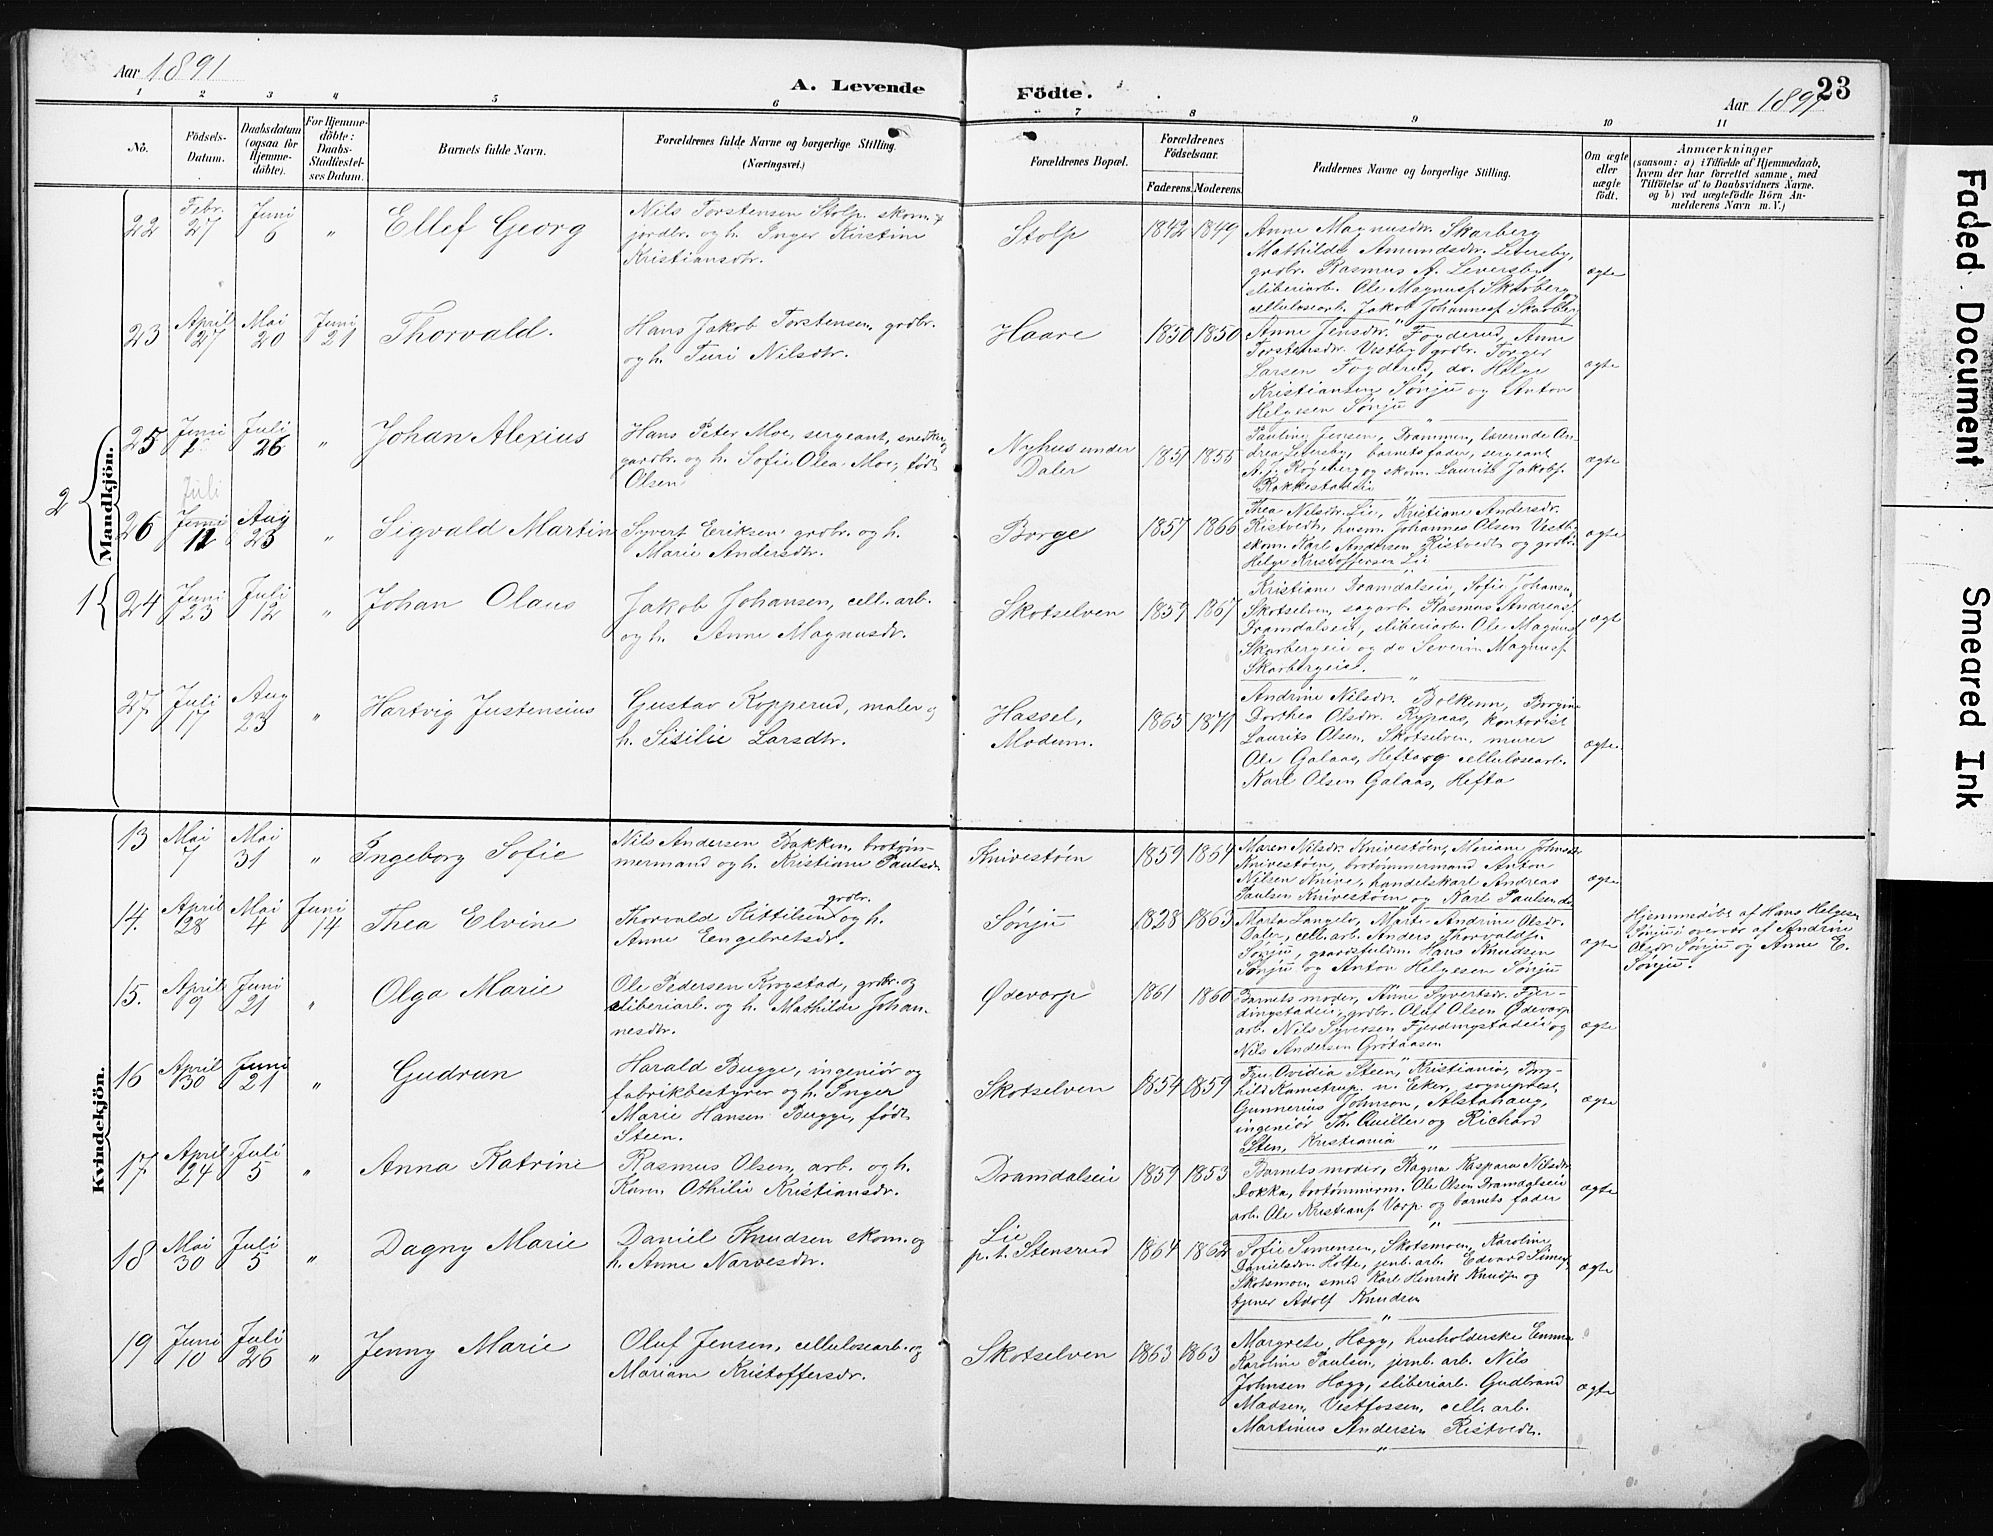 Aar 1891
A. Levende Födte.
Aar 1891
23
1 2 3 4 5 6 7 8 9 10 11
No.
Födsels-Datum.
Daabsdatum (ogsaa for Hjemme-döbte).
For Hjemme-döbte: Daabs-Stadfæstel-ses Datum.
Barnets fulde Navn.
Forældrenes fulde Navne og borgerlige Stilling.
(Næringsvei.)
Forældrenes Bopæl.
Forældrenes Födselsaar.
Faderens. Moderens.
Faddernes Navne og borgerlige Stilling.
Om ægte eller uægte födt.
Anmærkninger
(saasom: a) i Tilfælde af Hjemmedaab,
hvem der har forrettet samme, med
Tilföielse af to Daabsvidners Navne.
og b) ved uægtefödte Börn An-
melderens Navn m. V.)
Mandkjön.
2
1
22 Febr. 27 Juni 6 " Ellef Georg
Nils Torstensen Stolp, skom. &
jordbr. og h. Inger Kirstine
Kristiansdtr.
Stolp 1842 1849
Anne Magnusdtr. Skarberg
Mathilde Amundsdtr. Leversby,
grdbr. Rasmus A. Leversby,
sliberiarb. Ole Magnusf. Skarberg og
cellulosearb. Jakob Johannesf. Skarberg
ægte
23 April 27 Mai 20 Juni 21 Thorvald.
Hans Jakob Torstensen, grdbr.
og h. Turi Nilsdtr.
Haare 1850 1850
Anne Jensdtr. Fogderud, Anne
Torstensdtr. Vestby, grdbr. Torger
Larsen Fogderud, do. Helge
Kristiansen Sønju og Anton
Helgesen Sønju
ægte
25 Juni 1 Juli 26 " Johan Alexius
Hans Peter Moe, sergeant, snedker og
gardbr. og h. Sofie Olea Moe, født
Olsen
Nyhus under
Daler 1851 1855
Pauline Jensen, Drammen, lærerinde An-
drea Leversby, barnets fader, sergeant
A. J. Røgeberg og skom. Laurits Jakobf.
Rokkestadeie
ægte
26 Juli
Juni 12 Aug 23 " Sigvald Martin
Syvert Eriksen, grdbr. og h.
Marie Andersdtr.
Borge 1857 1866
Thea Nilsdtr. Lie, Kristiane Andersdtr.
Ristvedt, husm. Johannes Olsen Vestb.
skom. Karl Andersen Ristvedt og grdbr.
Helge Kristoffersen Lie
ægte
24 Juni 23 Juli 12 " Johan Olaus
Jakob Johansen, cell. arb.
og h. Anne Magnusdr.
Skotselven 1859 1867
Kristiane Dramdalseie, Sofie Johansen,
Skotselven, sagarb. Rasmus Andreasf.
Dramdalseie, sliberiarb. Ole Magnusf.
Skarbergeie og do Severin Magnusf.
Skarbergeie.
ægte
27 Juli 17 Aug 23 " Hartvig Justensius
Gustav Kopperud, maler og
h. Sisilie Larsdtr.
Hassel,
Modum. 1865 1871
Andrine Nilsdtr. Bolkesen,
Dorthea Olsdtr. Rypaas, kontorist
Laurits Olsen, Skotselven, murer
Ole Galaas, Hefta og cellulosearb.
Karl Olsen Galaas, Hefta
ægte
Kvindekjön.
13 Mai 7 Mai 31 " Ingeborg Sofie
Nils Andersen Bakken, brotøm-
mermand og h. Kristiane Paulsdr.
Knivestøen 1859 1864
Maren Nilsdr. Knivestøen, Mariane Johnsdr.
Knivestøen, brotømmermand Anton
Nilsen Knive, handelskarl Andreas
Paulsen Knivestøen og Karl Paulsen do
ægte
14. April 28 Mai 4 Juni 14 Thea Elvine
Thorvald Kittilsen grdbr. og h.
Anne Eengebretsdr.
Sønju 1828 1863
Marta Langelo, Marte Andrine Olsdr.
Daler, cell. arb. Anders Thorvaldf.
Sønju, gaardsfuldm. Hans Knudsen
Sønju og Anton Helgesen Sønju
ægte
Hjemmedøbt af Hans Helgesen
Sønju i overvær af Andrine
Olsdr. Sønju og Anne E.
Sønju.
15. April 9 Juni 21 " Olga Marie
Ole Pedersen Krogstad, grdbr. og
sliberiarb. og h. Mathilde Johan-
nesdtr.
Ødevorp 1861 1860
Barnets moder, Anne Syvertsdr. Fjer-
dingstadeie, grdbr. Oluf Olsen Ødevorp
arb. Nils Syversen Fjerdingstadeie og
Nils Andersen Grøtaasen
ægte
16 April 30 Juni 21 " Gudrun
Harald Bugge, ingeniør og
fabrikbestyrer og h. Inger
Marie Hansen Bugge, født
Steen.
Skotselven 1854 1859
Fru Ovidia Steen, Kristiania, Borg-
hild Kamstrup, n. Eker, sogneprest
Gunnerius Johnson, Alstahaug,
ingeniør Th. Quiller og Richard
Sten, Kristiania
ægte
17 April 24 Juli 5 " Anna Katrine
Rasmus Olsen, arb. og h.
Karen Othilie Kristiansdr.
Dramdalseie 1859 1853
Barnets moder, Ragna Kaspara Nilsdr.
Dokka, brotømmerm. Ole Olsen Dramdalseie
arb. Ole Kristianf. Vorp og barnets fader
ægte
18 Mai 30 Juli 5 " Dagny Marie
Daniel Knudsen skom. og
h. Anne Narvesdtr.
Lie
p. t. Stensrud 1864 1862
Sofie Simensen, Skotsmoen, Karoline
Danielsdr. Holte, jenb. arb. Edvard Simensf.
Skotsmoen, smed Karl Henrik Knudsen og
tjener Adolf Knudsen
ægte
19 Juni 10 Juli 26 " Jenny Marie
Oluf Jensen, cellulosearb. og
Mariane Kristoffersdr.
Skotselven 1863 1863
Margrete Hægg, husholderske Emma
Karoline Paulsen, jernb. arb. Nils
Johnsen Hægg, sliberiarb. Gudbrand
Madsen, Vestfossen, cell. arb.
Martinus Andersen Ristvedt.
ægte
Faded Document
Smeared Ink